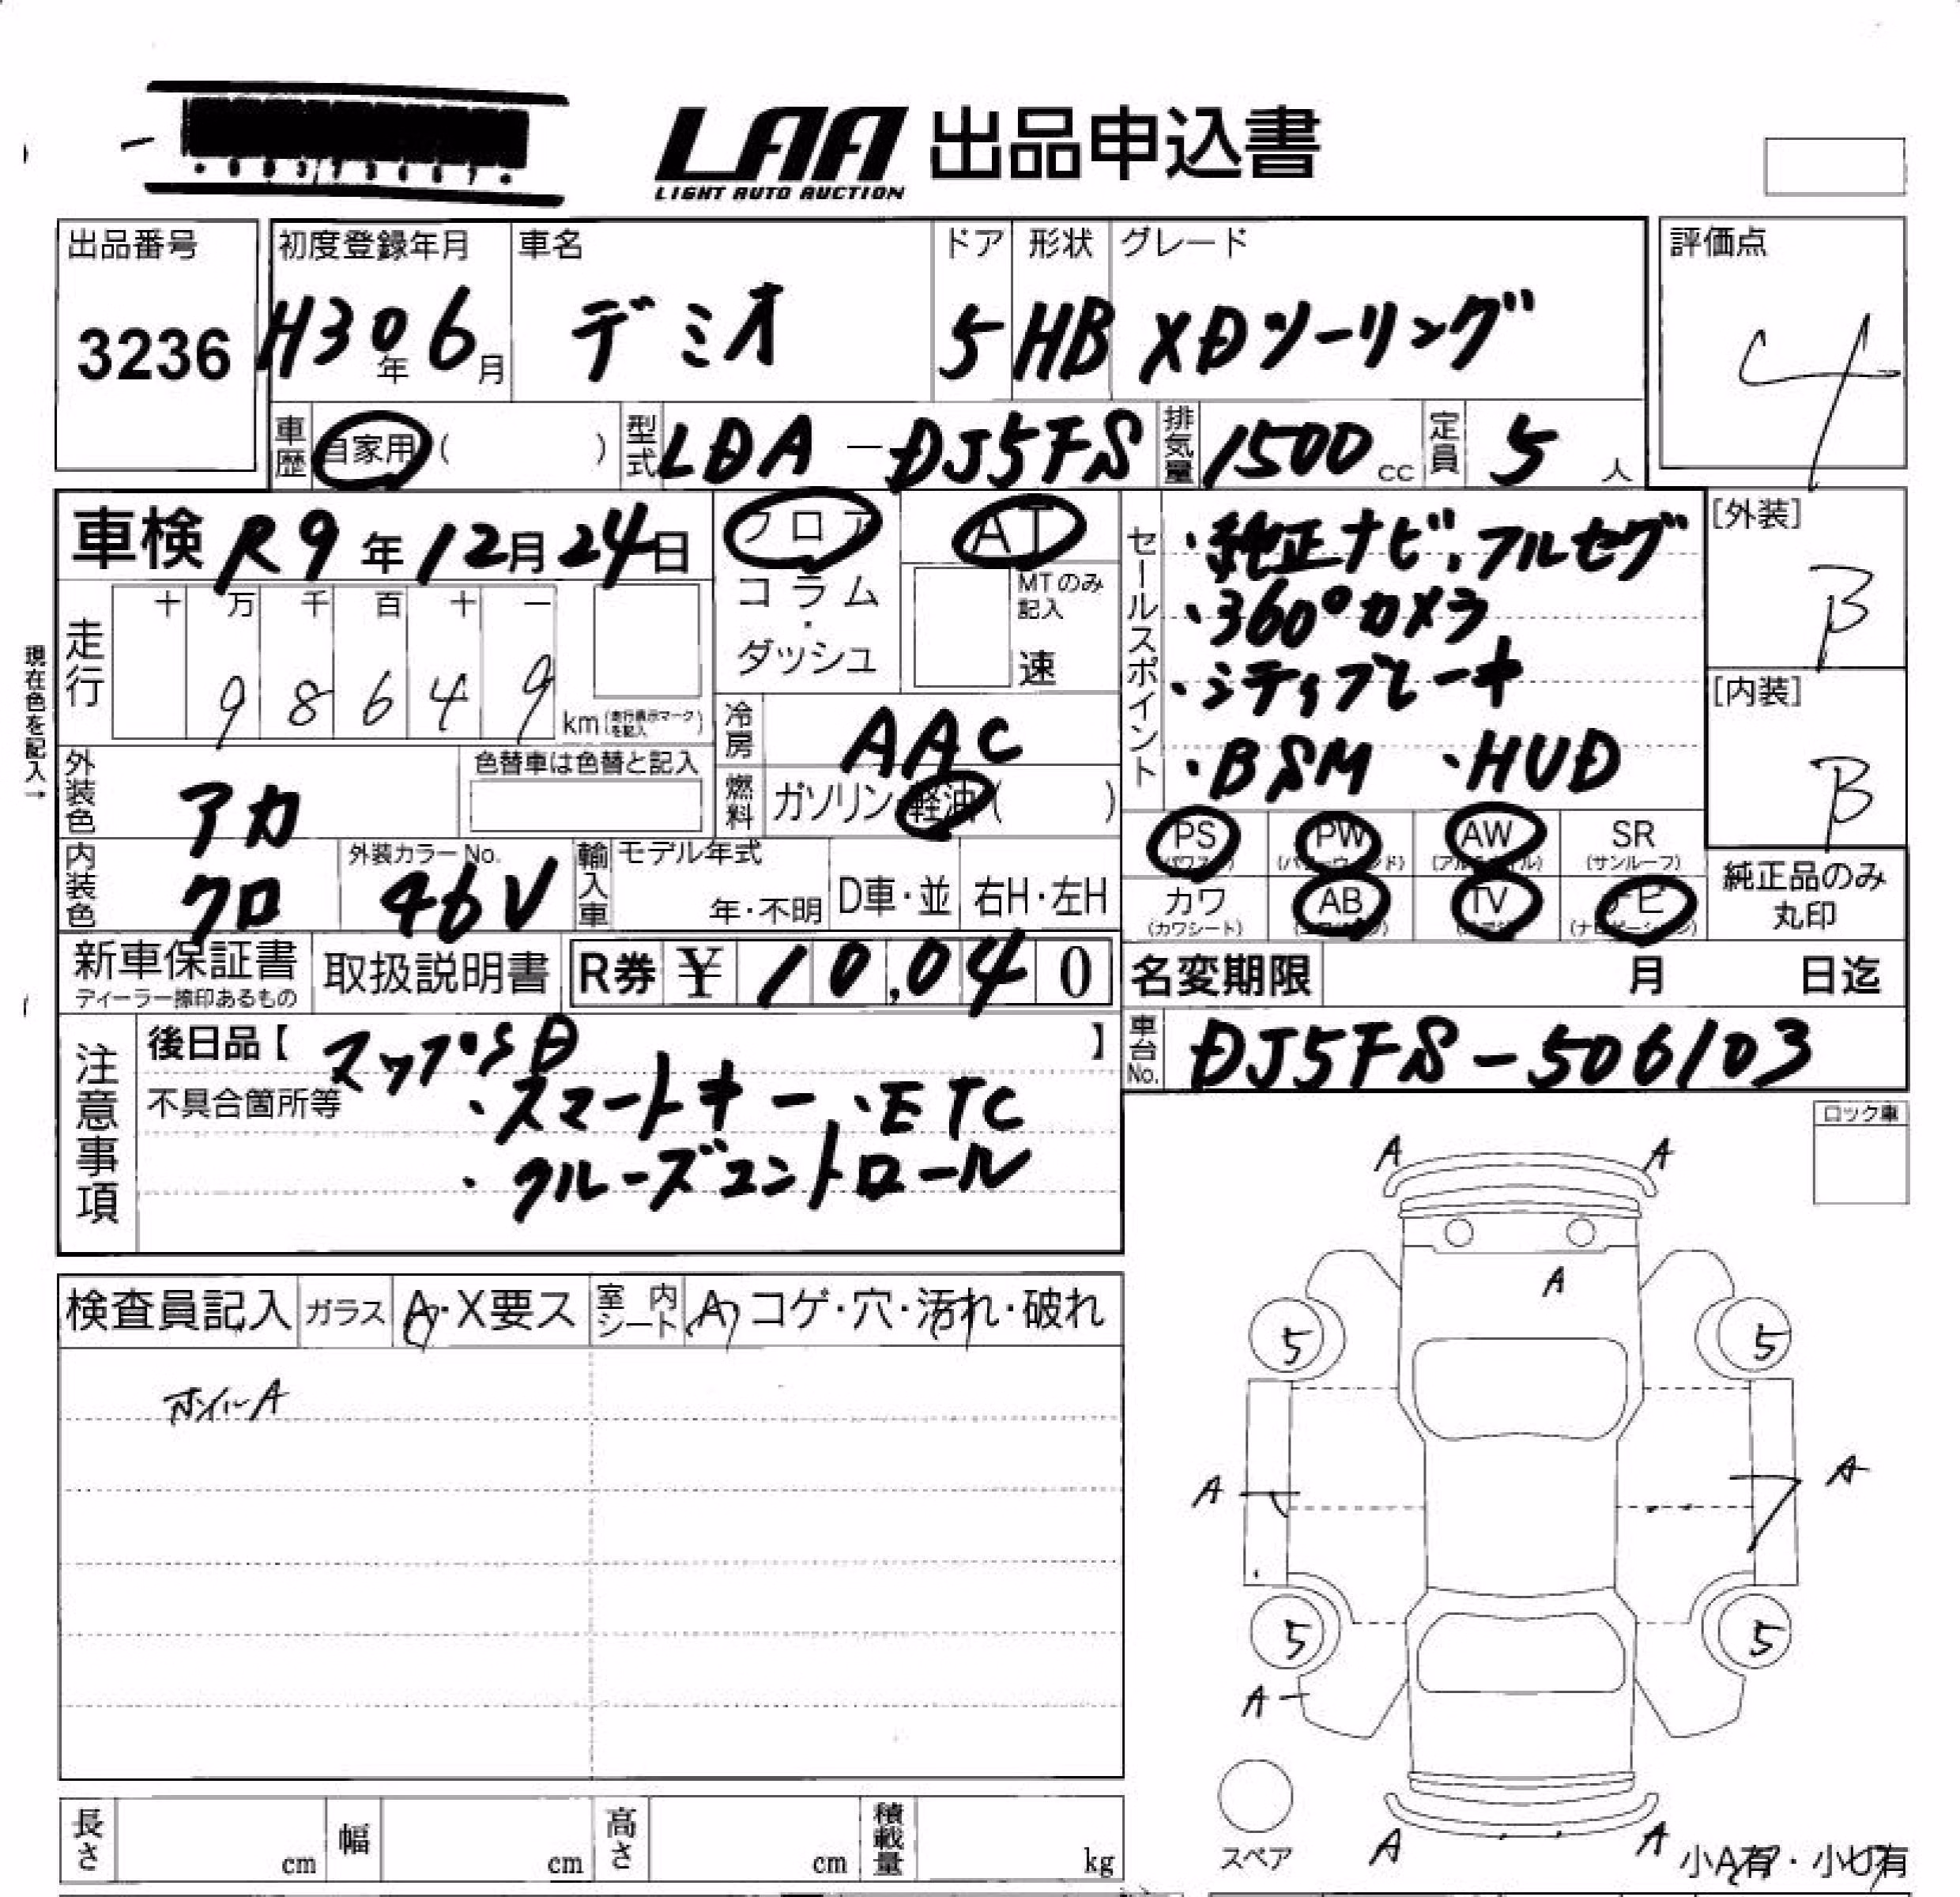 LAA 出品申込書
LIGHT AUTO AUCTION
出品番号 初度登録年月 車名 ドア 形状 グレード 評価点
3236 H30年6月 デミオ 5 HB XDツーリング 4
車歴 自家用 ( ) 型式 LDA-DJ5FS 排気量 1500cc 定員 5人
車検 R9年12月24日 フロア AT
コラム・ダッシュ MTのみ記入 速
走行 十 万 千 百 十 一
9 8 6 4 9 km (走行表示マークを記入)
現在色を記入→
セールスポイント
・純正ナビ、フルセグ
・360°カメラ
・シティブレーキ
・BSM ・HUD
[外装]
B
[内装]
B
冷房 AAC
外装色 アカ 色替車は色替と記入
燃料 ガソリン・軽油( )
内装色 クロ 外装カラーNo. 46V 輸入車 モデル年式 年・不明 D車・並 右H・左H
PS PW AW SR
(パワステ) (パワーウィンド) (アルミホイル) (サンルーフ)
カワ AB TV ナビ
(カワシート) (エアバッグ) (ナビゲーション)
純正品のみ
丸印
新車保証書 取扱説明書 R券 ¥ 10,040
ディーラー捺印あるもの
名変期限 月 日迄
注意事項
後日品【 マップSD 】
不具合箇所等 ・スマートキー ・ETC
・クルーズコントロール
車台No. DJ5FS-506103
ロック車
検査員記入 ガラス A・X要ス 室内シート A コゲ・穴・汚れ・破れ
ホイールA
A A
A
5 5
A A
5 5
A
スペア
A A
小A有・小U有
長さ cm 幅 cm 高さ cm 積載量 kg